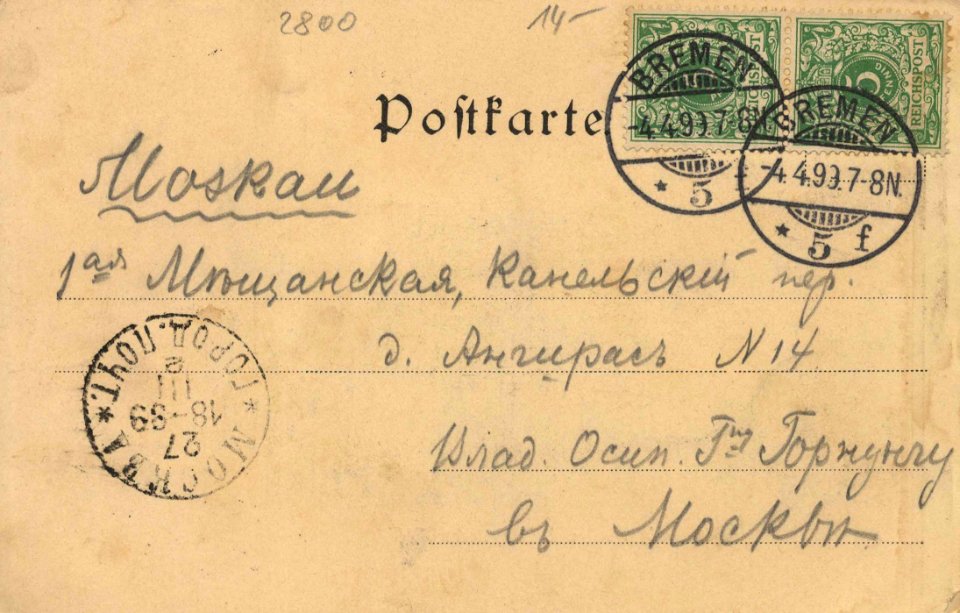 2800 14-
REICHSPOST REICHSPOST
5
BREMEN
-4.4.99.7-8N.
* 5 f
BREMEN
-4.4.99.7-8N.
* 5 f
Postkarte
Moskau
1ая Мѣщанская, Капельскій пер.
д. Ангирасъ N 14
Влад. Осип. Гну
въ Москвѣ
* МОСКВА *
27
18-99
III
2
ГОРОД. ПОЧТ.